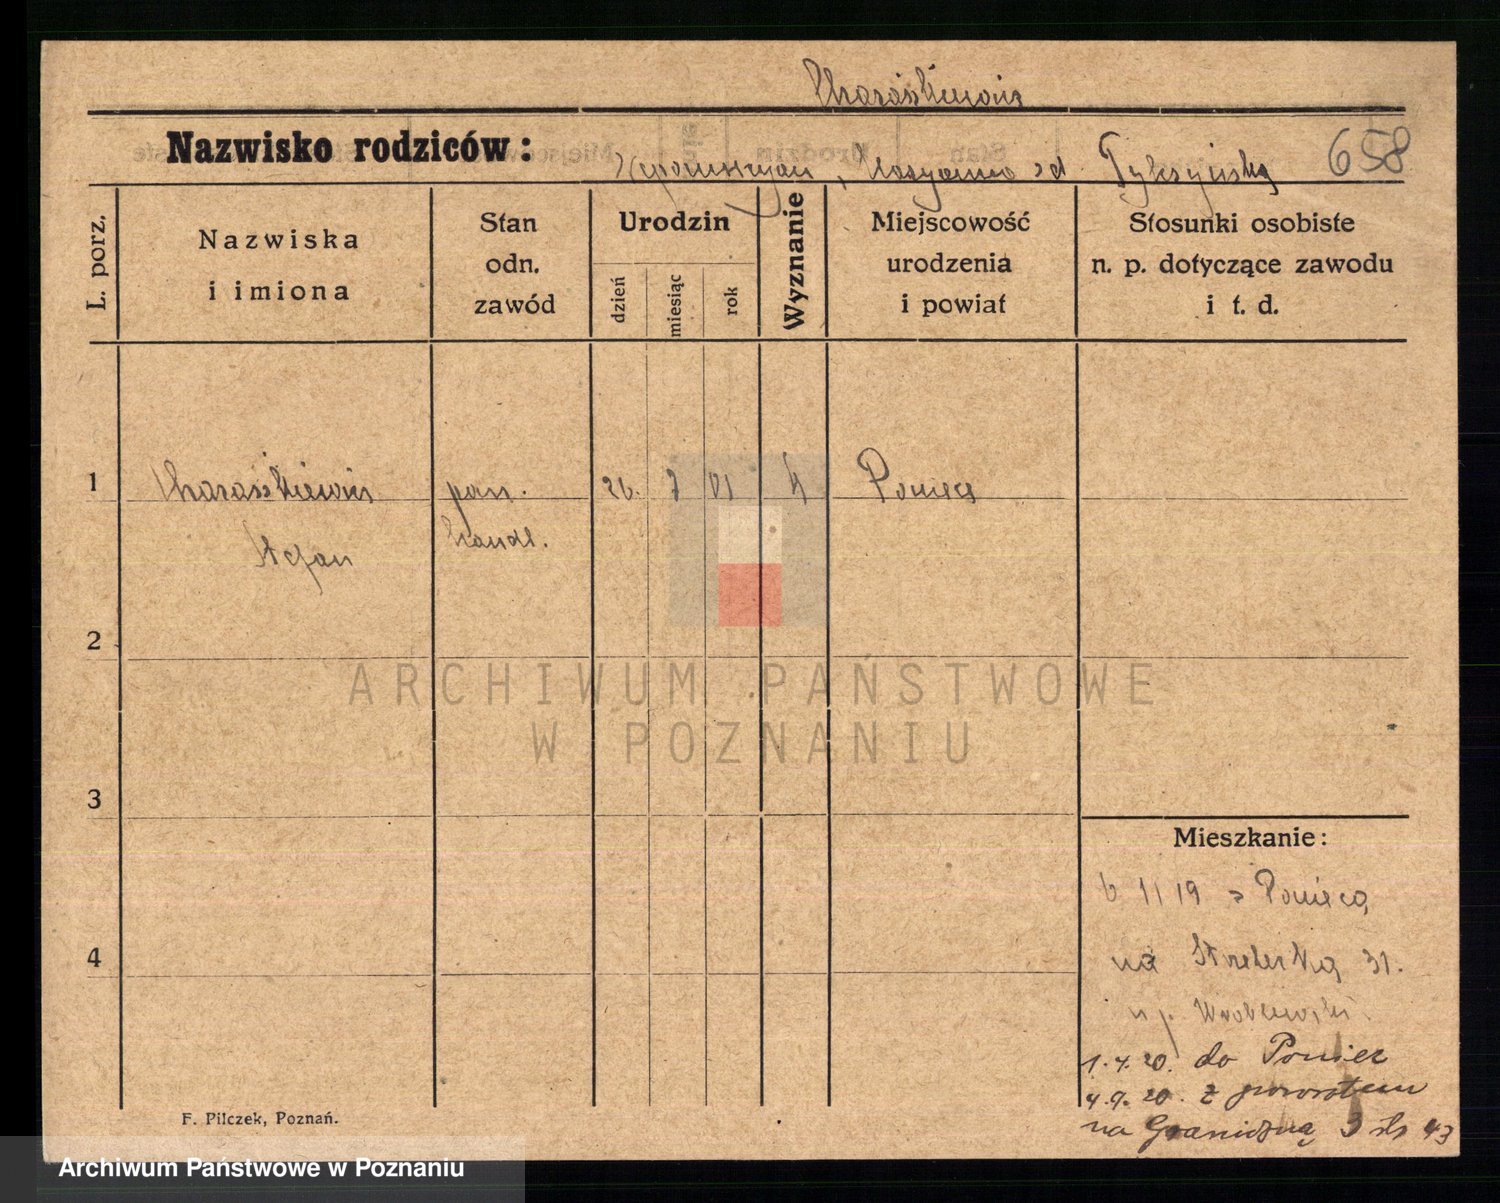 Charaśkiewicz
Nazwisko rodziców:
Nepomucyn, zd. 658
L. porz.
Nazwiska
i imiona
Stan
odn.
zawód
Urodzin
dzień
miesiąc
rok
Wyznanie
Miejscowość
urodzenia
i powiat
Stosunki osobiste
n. p. dotyczące zawodu
i t. d.
1 Charaśkiewicz pan. 26. 7 01 k Poniec
Stefan handl.
2
ARCHIWUM PAŃSTWOWE
W POZNANIU
3
Mieszkanie:
6 11 19 z Ponieca
4
na Strzelecką 31.
u p. Wroblewski.
1.4.20. do Poniec
4.9.20. z powrotem
na Graniczną 3
F. Pilczek, Poznań.
Archiwum Państwowe w Poznaniu